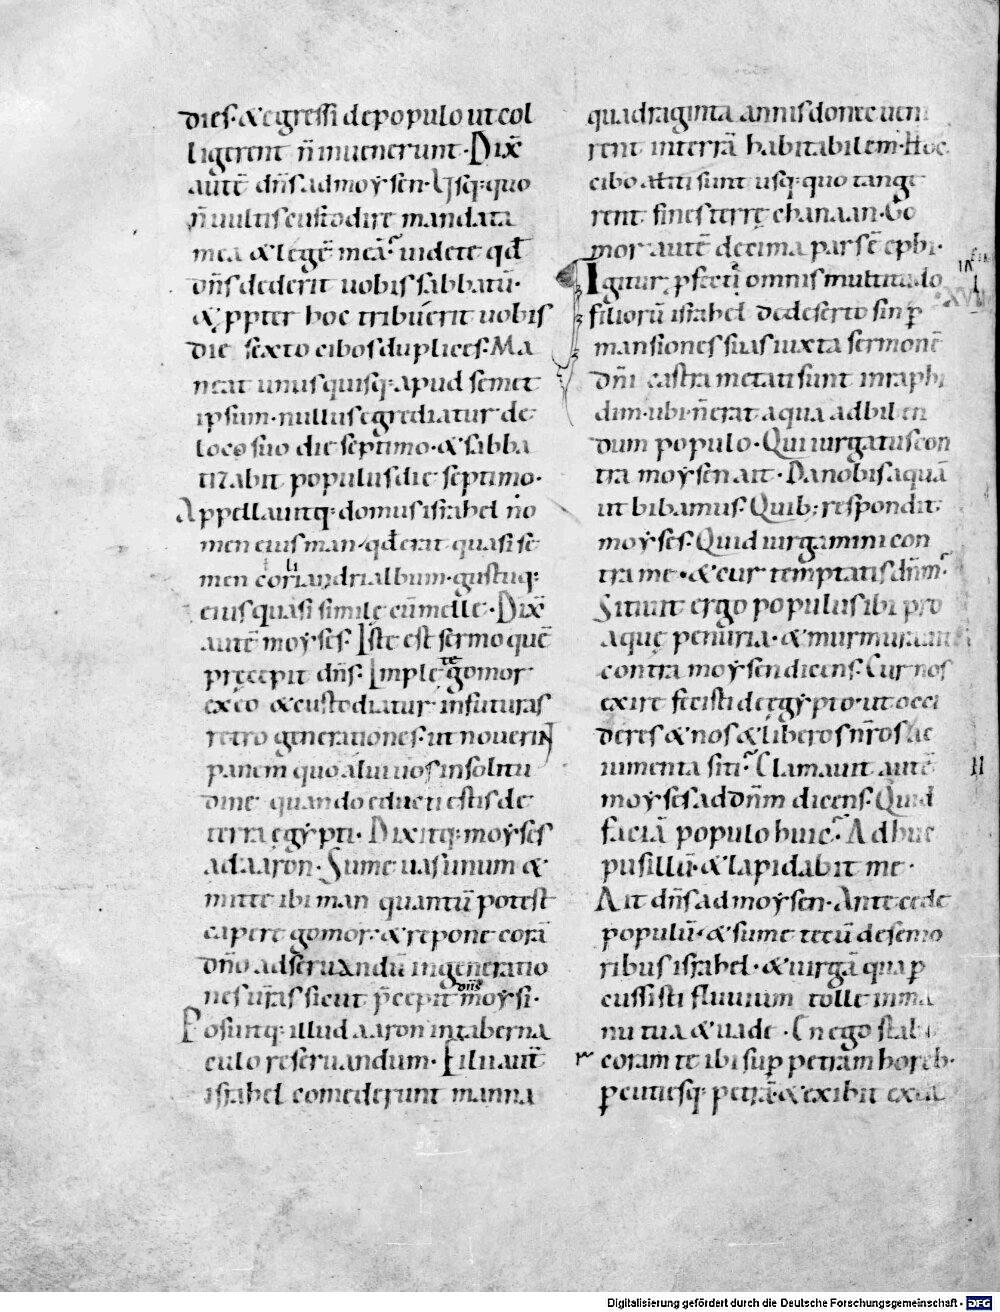 dies· & egressi de populo ut col
ligerent n̄ inuenerunt· Dix̄
autē dn̄s ad moẏsen· Usq; quo
n̄ uultis custodire mandata
mea & legē meā? uidete qd̄
dn̄s dederit uobis sabbatū·
& ꝓpter hoc tribuerit uobis
die sexto cibos duplices· Ma
neat unusquisq; apud semet
ipsum· nullus egrediatur de
loco suo die septimo· & sabba
tizabit populus die septimo·
Appellauitq; domus israhel no
men eius man· qd̄ erat quasi se
men coriandri album· gustusq;
eius quasi similę cū melle· Dix̄
autē moẏses· Iste est sermo quē
pręcepit dn̄s· Imple gomor
ex eo & custodiatur in futuras
retro generationes· ut nouerint
panem quo alui uos in solitu
dine quando educti estis de
terra ęgẏpti· Dixitq; moẏses
ad aaron· Sume uas unum &
mitte ibi man quantū potest
capere gomor· & repone corā
dn̄o ad seruandū in generatio
nes ur̄as sicut p̄cepit dn̄s moẏsi·
Posuitq; illud aaron in taberna
culo reseruandum· Filii aut̄
israhel comederunt manna
quadraginta annis donec ueni
rent in terrā habitabilem· Hoc
cibo aliti sunt usq; quo tange
rent fines terrę chanaan· Go
mor autē decima pars ē ephi·
Igitur ꝓfecti omnis multitudo
filiorū israhel de deserto sin ꝑ
mansiones suas iuxta sermonē
dn̄i castra metati sunt in raphi
dim· ubi n̄ erat aqua ad biben
dum populo· Qui iurgatus con
tra moẏsen ait· Da nobis aquā
ut bibamus· Quib; respondit
moẏses· Quid iurgamini con
tra me· & cur temptatis dn̄m?
Sitiuit ergo populus ibi pro
aquę penuria· & murmurauit
contra moẏsen dicens· Cur nos
exire fecisti de ęgẏpto· ut occi
deres & nos & liberos nr̄os ac
iumenta siti? Clamauit autē
moẏses ad dn̄m dicens· Quid
faciā populo huic? Adhuc
pusillū· & lapidabit me·
Ait dn̄s ad moẏsen· Antecede
populū· & sume tecū de senio
ribus israhel· & uirgā qua ꝑ
cussisti fluuium tolle in ma
nu tua & uade· En ego stabo
coram te ibi sup̄ petram horeb·
ꝑcutiesq; petrā· & exibit ex ea
XVII
II
Digitalisierung gefördert durch die Deutsche Forschungsgemeinschaft - DFG